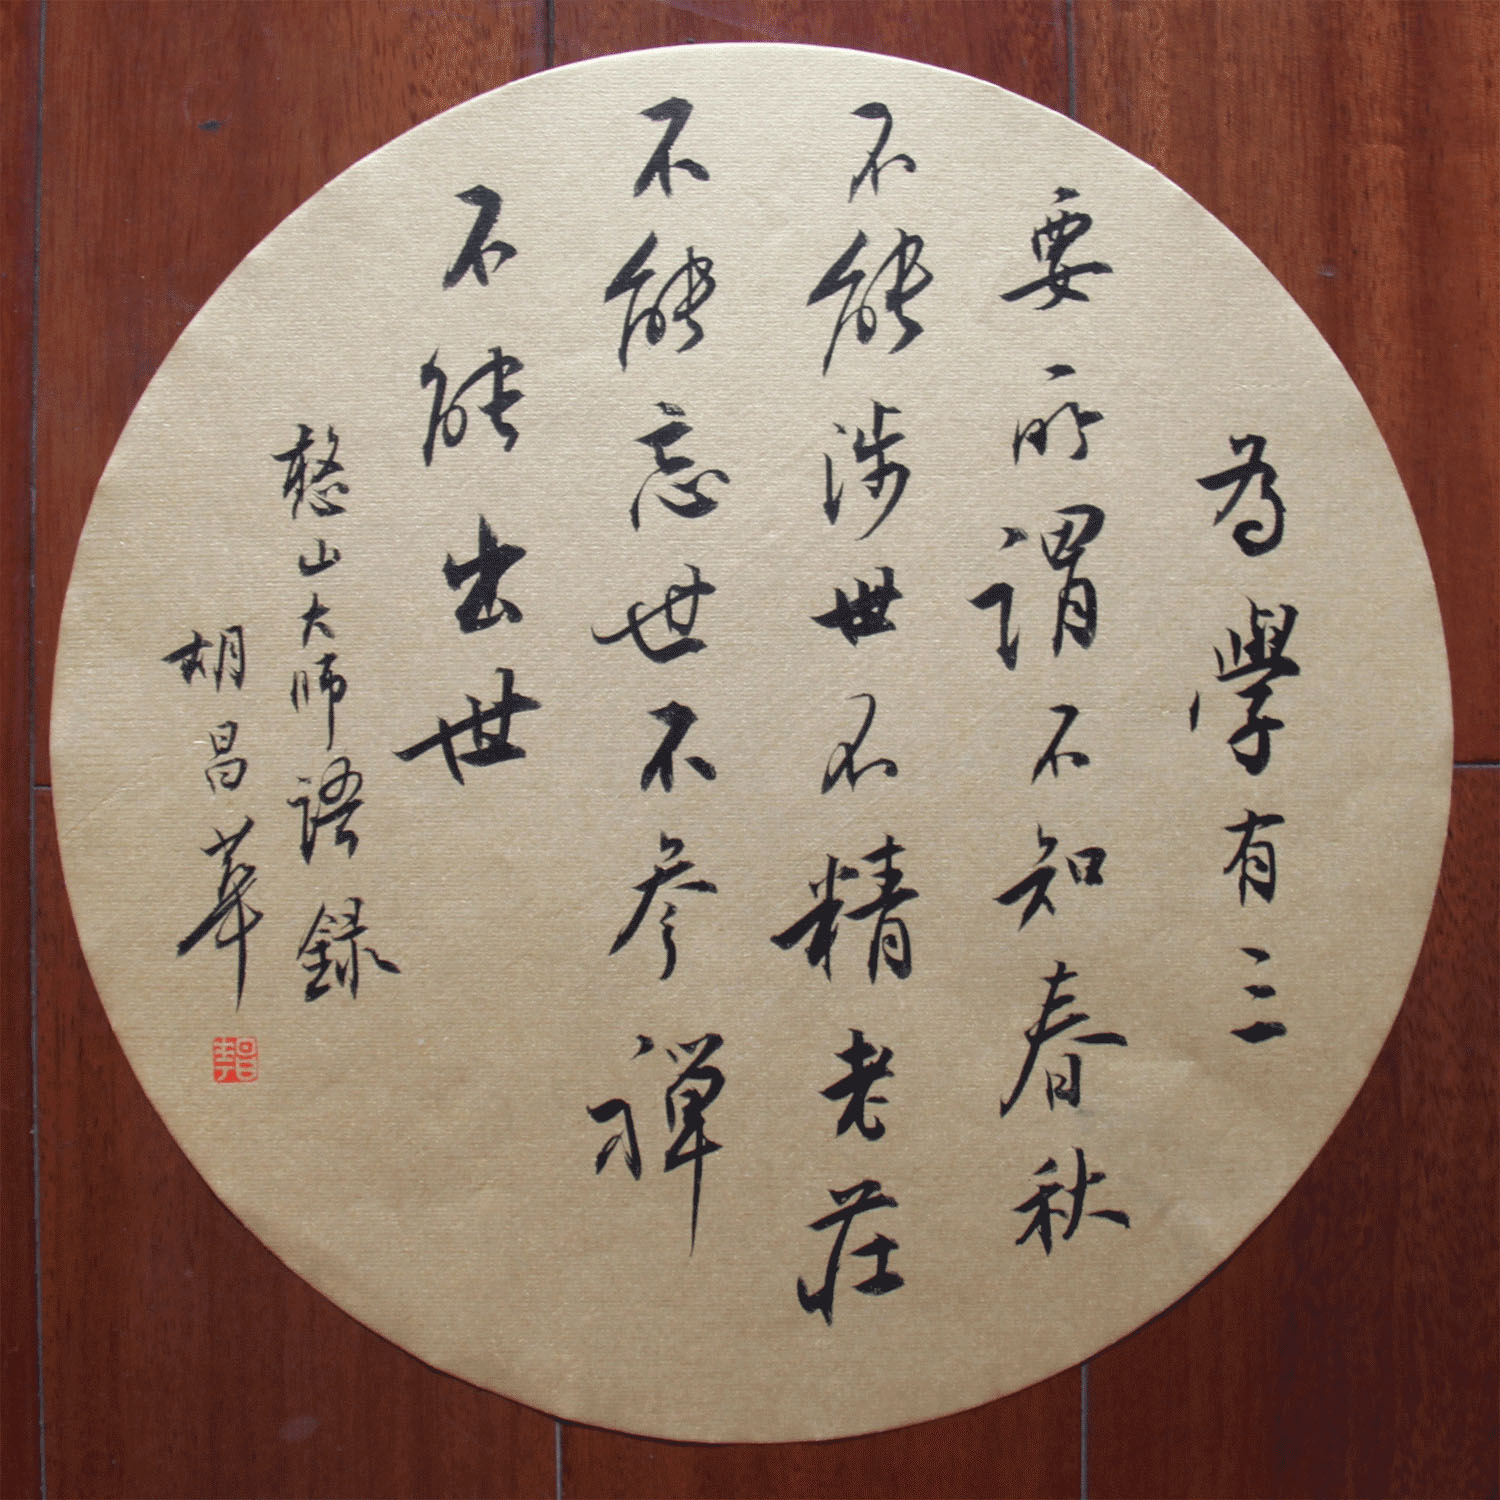 為學有三
要所謂不知春秋
不能涉世不精老莊
不能忘世不參禪
不能出世
憨山大師語錄
胡昌華